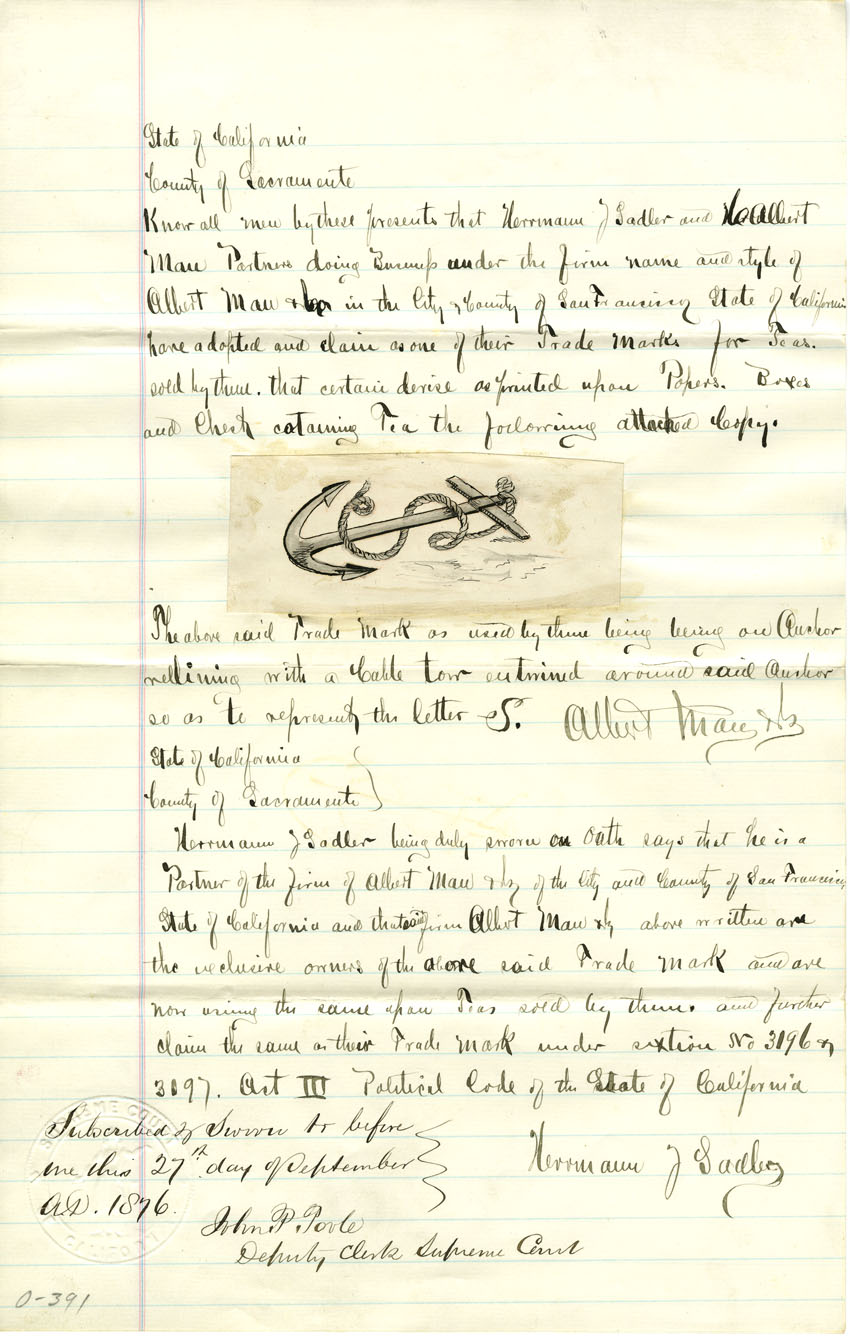 State of California
County of Sacramento
Know all men by these presents that Herrmann J Sadler and Albert
Mau Partners doing Business under the firm name and style of
Albert Mau & Co in the City & County of San Francisco State of California
have adopted and claim as one of their Trade Marks for Teas.
sold by them. that certain devise as printed upon Papers. Boxes
and Chests cotaining Tea the following attached Copy.
The above said Trade Mark as used by them being being an Anchor
reclining with a Cable tow entwined around said Anchor
so as to represent the letter S. Albert Mau & Co
State of California
County of Sacramento
Herrmann J Sadler being duly sworn on Oath says that he is a
Partner of the firm of Albert Mau & Co of the City and County of San Francisco
State of California and that said firm Albert Mau & Co above written are
the exclusive owners of the above said Trade Mark and are
now using the same upon Teas sold by them. and further
claim the same as their Trade Mark under section No 3196 &
3197. Art III Political Code of the State of California
Subscribed & Sworn to before
me this 27th day of September
A.D. 1876.
Herrmann J Sadler
John P. Poole
Deputy Clerk Supreme Court
SUPREME COURT
CALIFORNIA
0-391